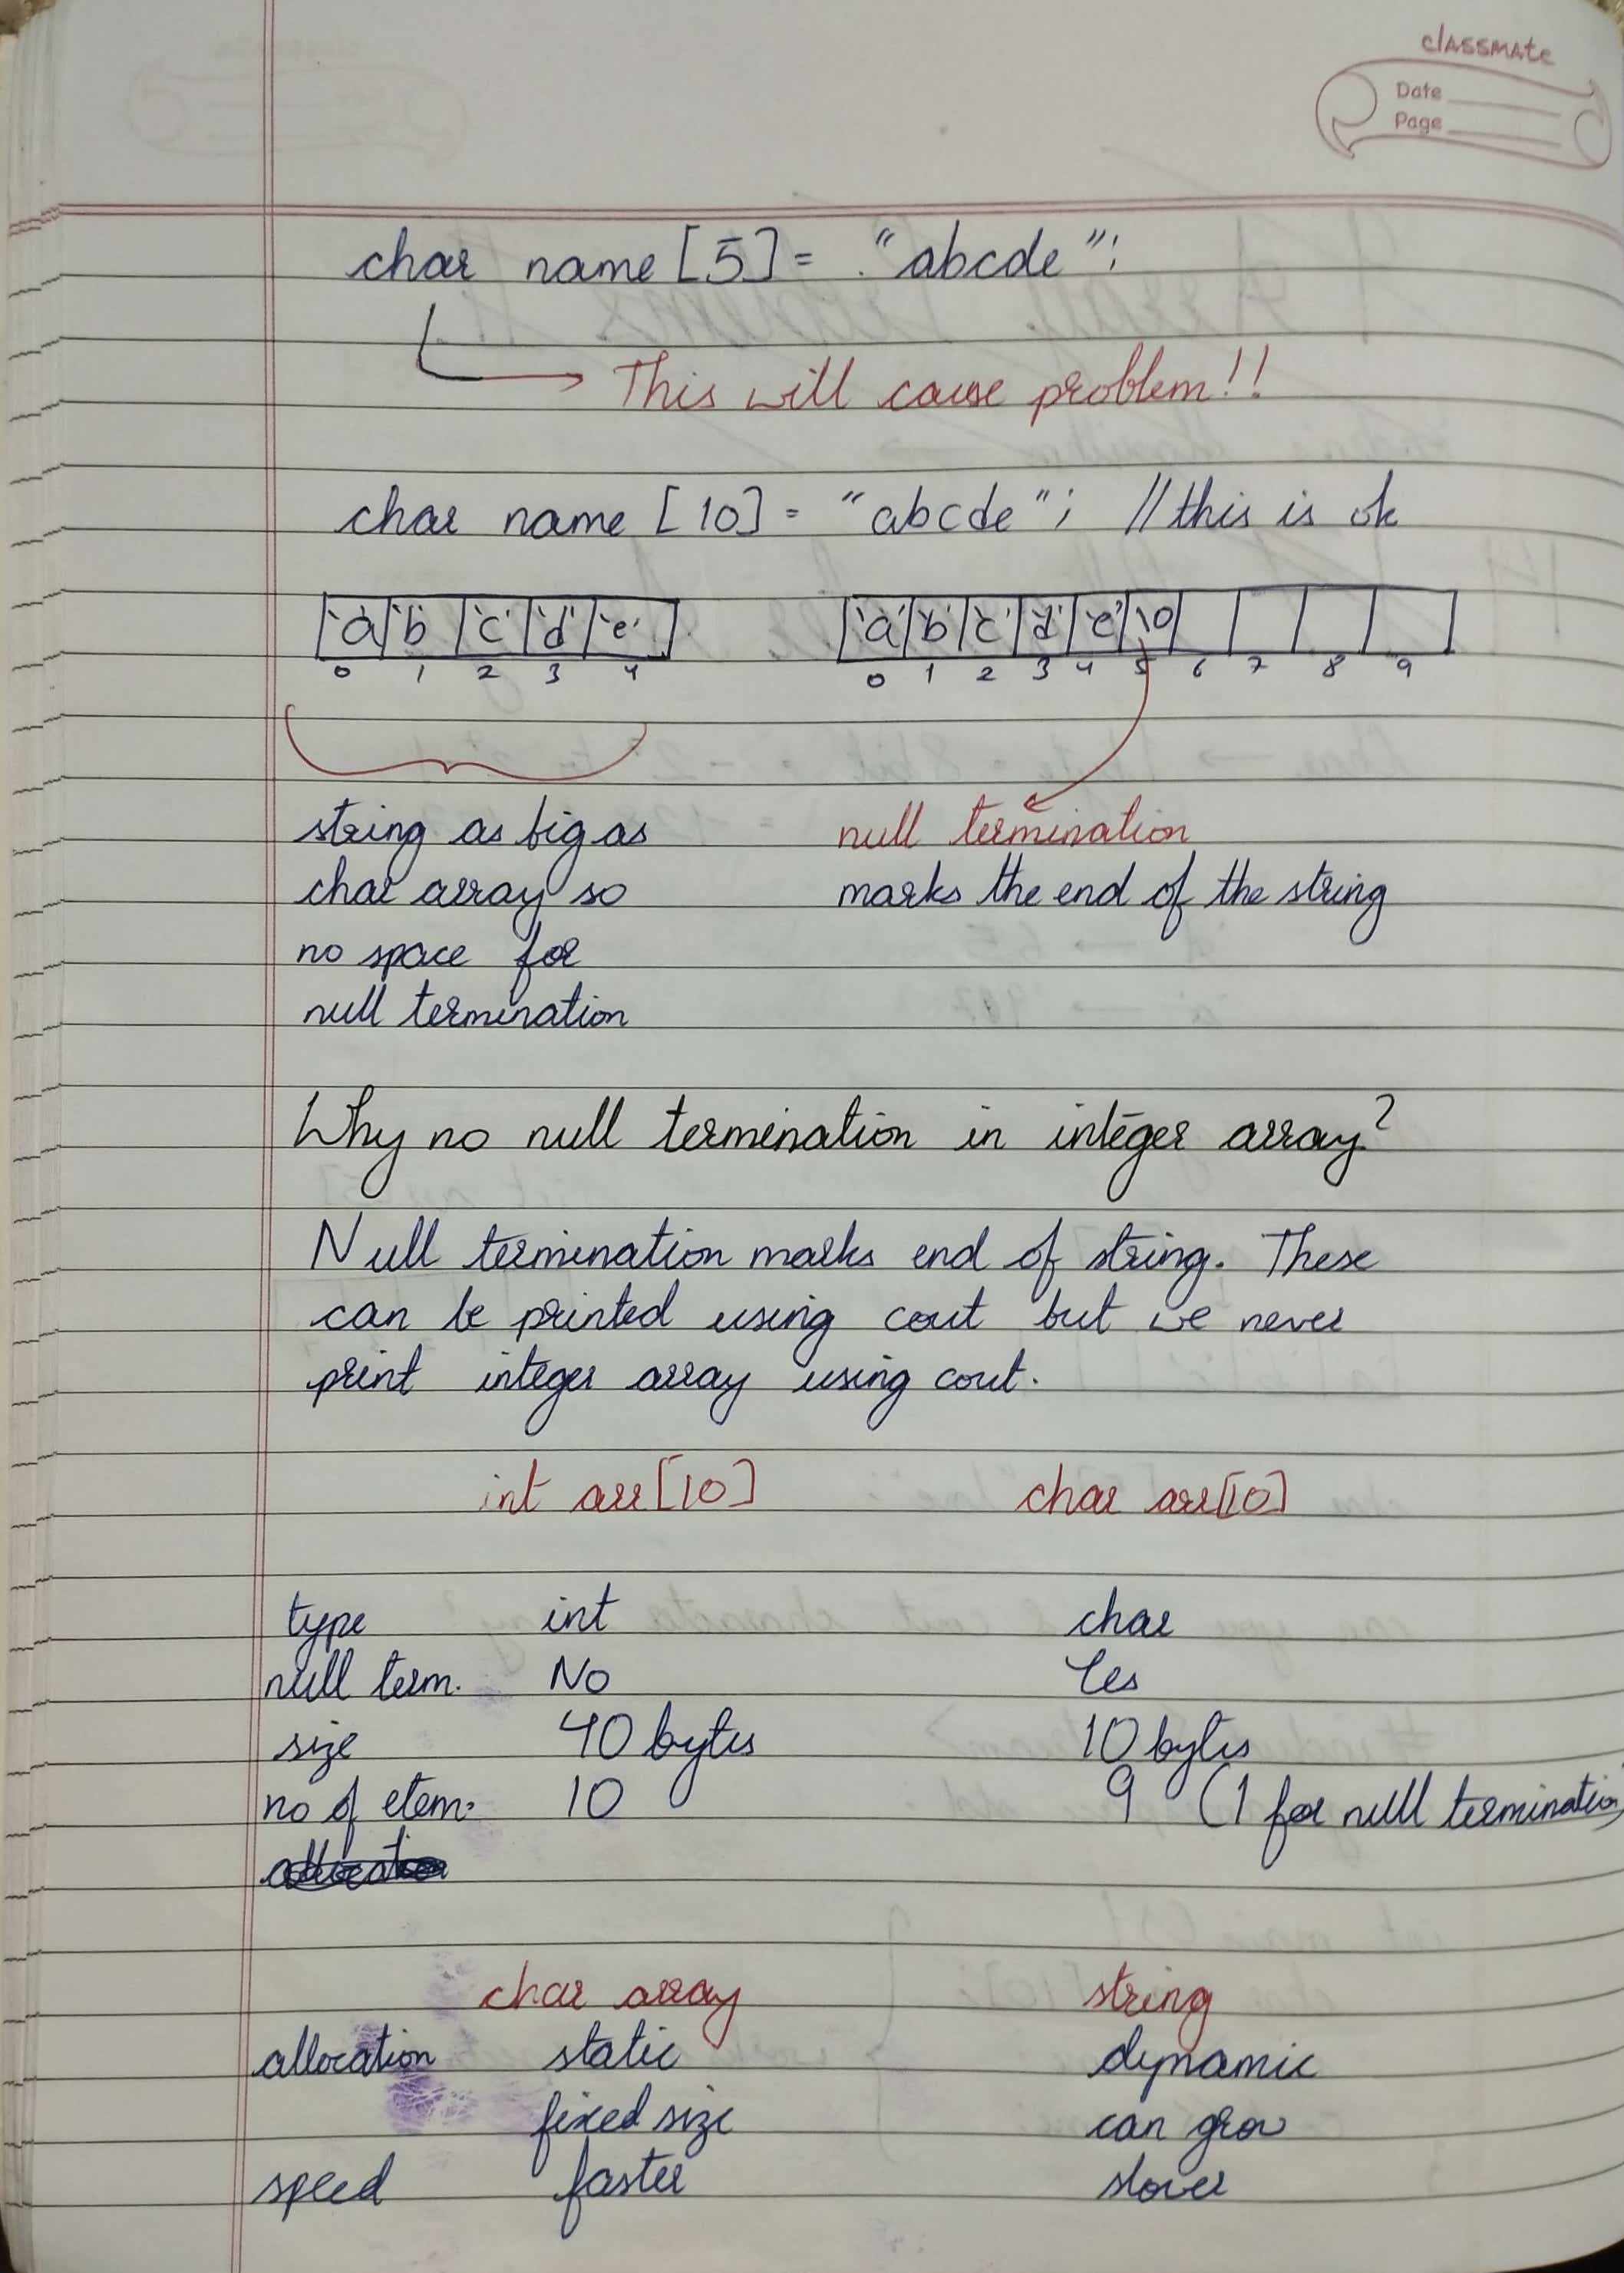 classmate
Date
Page
char name [5] = "abcde";
This will cause problem!!
char name [10] = "abcde"; //this is ok
'a' 'b' 'c' 'd' 'e' 'a' 'b' 'c' 'd' 'e' \0
0 1 2 3 4 0 1 2 3 4 5 6 7 8 9
string as big as null termination
char array so marks the end of the string
no space for
null termination
Why no null termination in integer array?
Null termination marks end of string. These
can be printed using cout but we never
print integer array using cout.
int arr[10] char arr[10]
type int char
null term. No Yes
size 40 bytes 10 bytes
no of elem. 10 9 (1 for null termination)
char array string
allocation static dynamic
fixed size can grow
speed faster slower